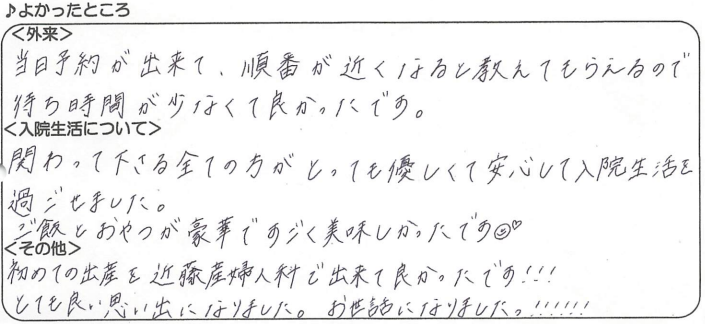 ♪よかったところ
<外来>
当日予約が出来て、順番が近くなると教えてもらえるので
待ち時間が少なくて良かったです。
<入院生活について>
関わって下さる全ての方がとっても優しくて安心して入院生活を
過ごせました。
ご飯とおやつが豪華ですごく美味しかったです☺♡
<その他>
初めての出産を近藤産婦人科で出来て良かったです!!!
とても良い思い出になりました。お世話になりました。!!!!!!